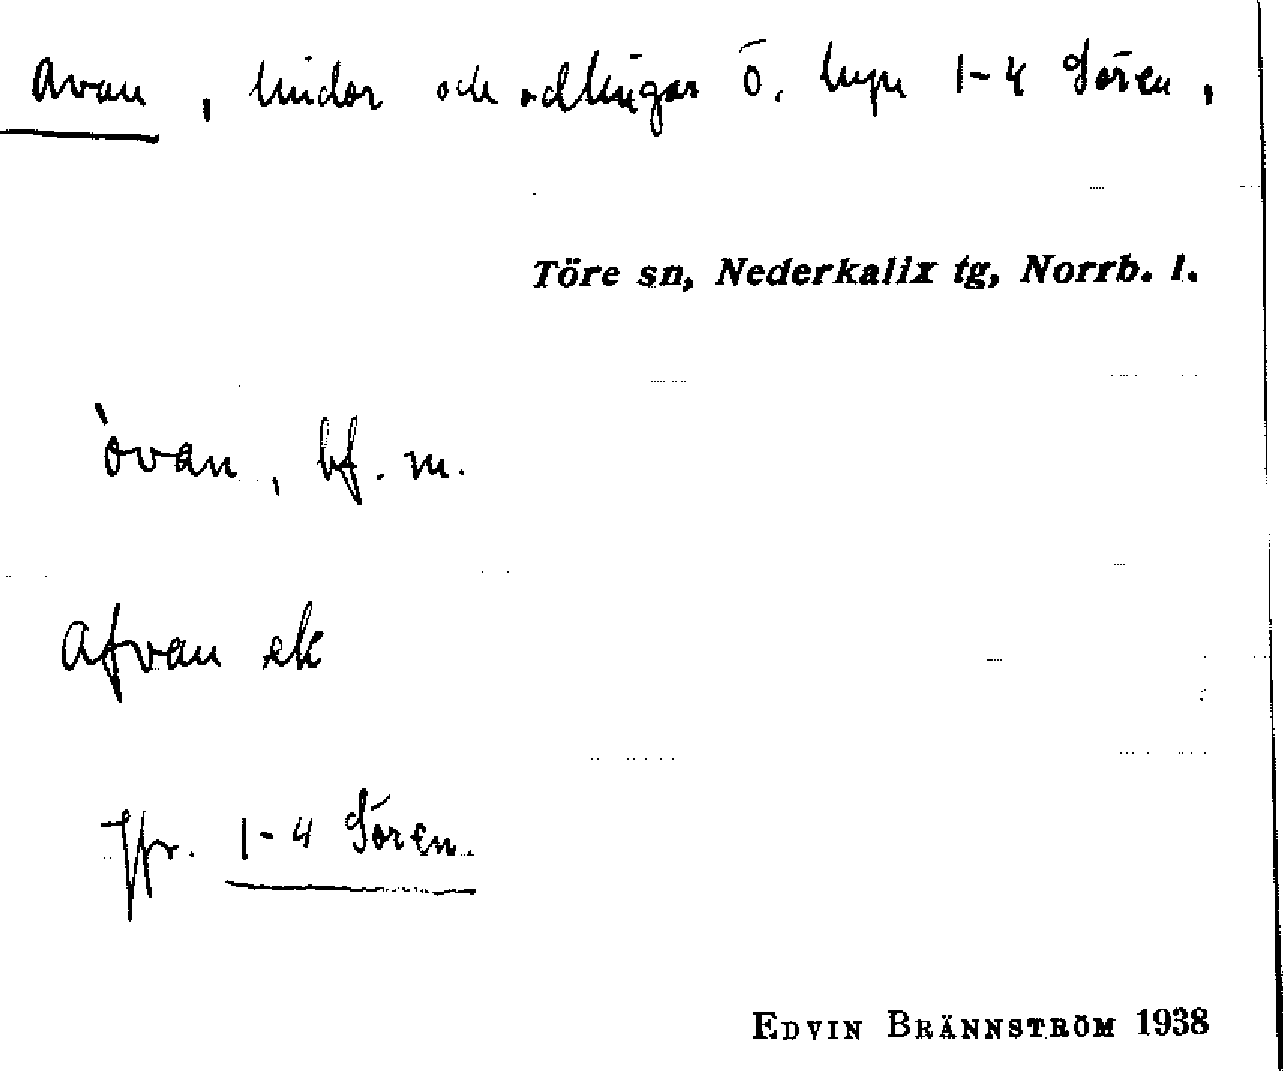 Avan, lindor och odlingar Ö. byn 1-4 Sören,
Töre sn, Nederkalix tg, Norrb. l.
`ovan, bf. m.
Afvan ek
Jfr. 1-4 Sören.
EDVIN BRÄNNSTRÖM 1938